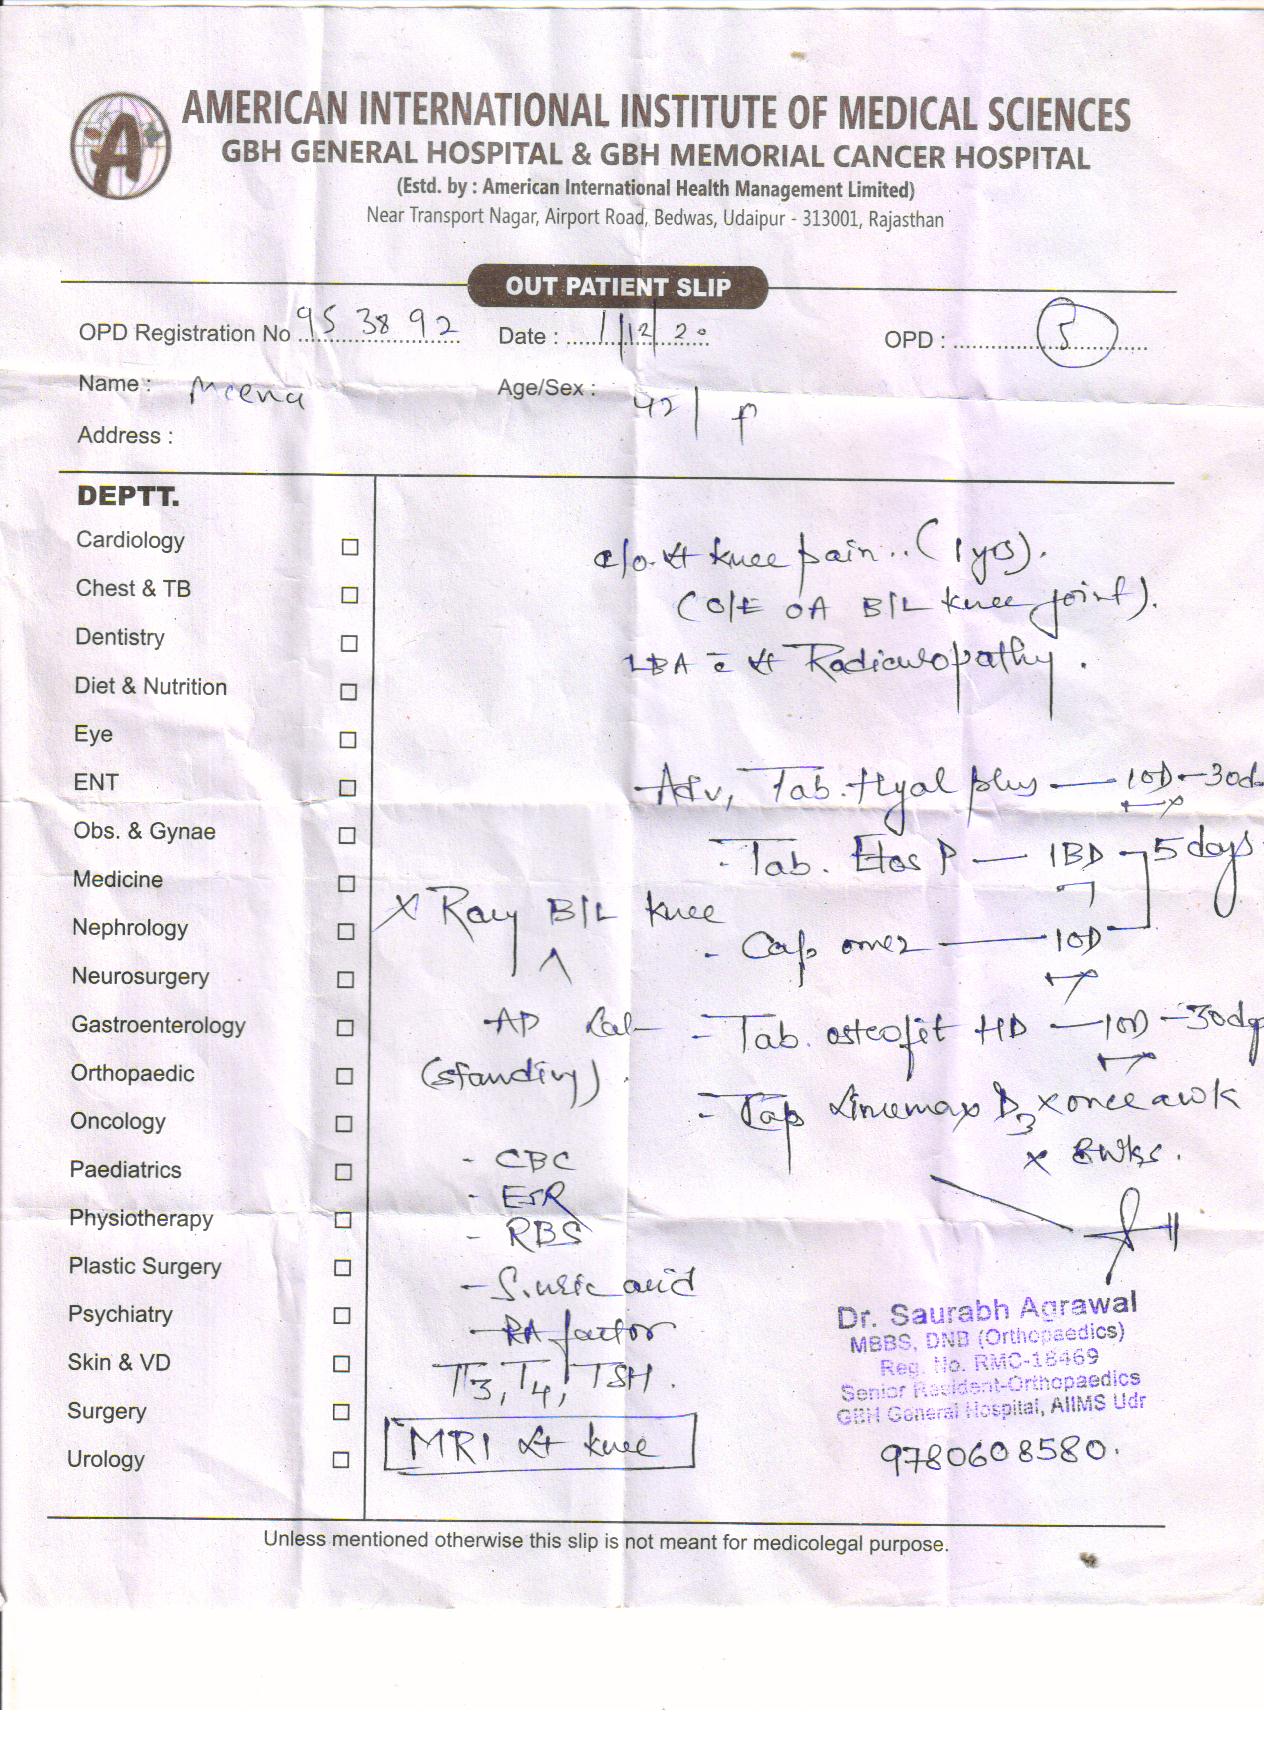 AMERICAN INTERNATIONAL INSTITUTE OF MEDICAL SCIENCES
GBH GENERAL HOSPITAL & GBH MEMORIAL CANCER HOSPITAL
(Estd. by : American International Health Management Limited)
Near Transport Nagar, Airport Road, Bedwas, Udaipur - 313001, Rajasthan
OUT PATIENT SLIP
OPD Registration No 953892 Date : 1/12/20 OPD : 5
Name : Meena Age/Sex : 42/F
Address :
DEPTT.
Cardiology
Chest & TB
Dentistry
Diet & Nutrition
Eye
ENT
Obs. & Gynae
Medicine
Nephrology
Neurosurgery
Gastroenterology
Orthopaedic
Oncology
Paediatrics
Physiotherapy
Plastic Surgery
Psychiatry
Skin & VD
Surgery
Urology
c/o. Lt knee pain.. (1yrs).
(O/E OA B/L knee joint).
LBA c̄ Lt Radiculopathy.
Adv, Tab. Hyal plus — 1OD — 30d
- Tab. Etos P — 1BD
5 days
- Cap omez — 1OD
- Tab. osteofit HD — 1OD — 30dy
- Cap D3 x once a wk
x 8wks.
X Ray B/L knee
AP Lat
(standing).
- CBC
- ESR
- RBS
- S. uric acid
- RA factor
T3, T4, TSH.
MRI Lt knee
Dr. Saurabh Agrawal
MBBS, DNB (Orthopaedics)
Reg. No. RMC-18469
Senior Resident-Orthopaedics
GBH General Hospital, AIIMS Udr
9780608580.
Unless mentioned otherwise this slip is not meant for medicolegal purpose.